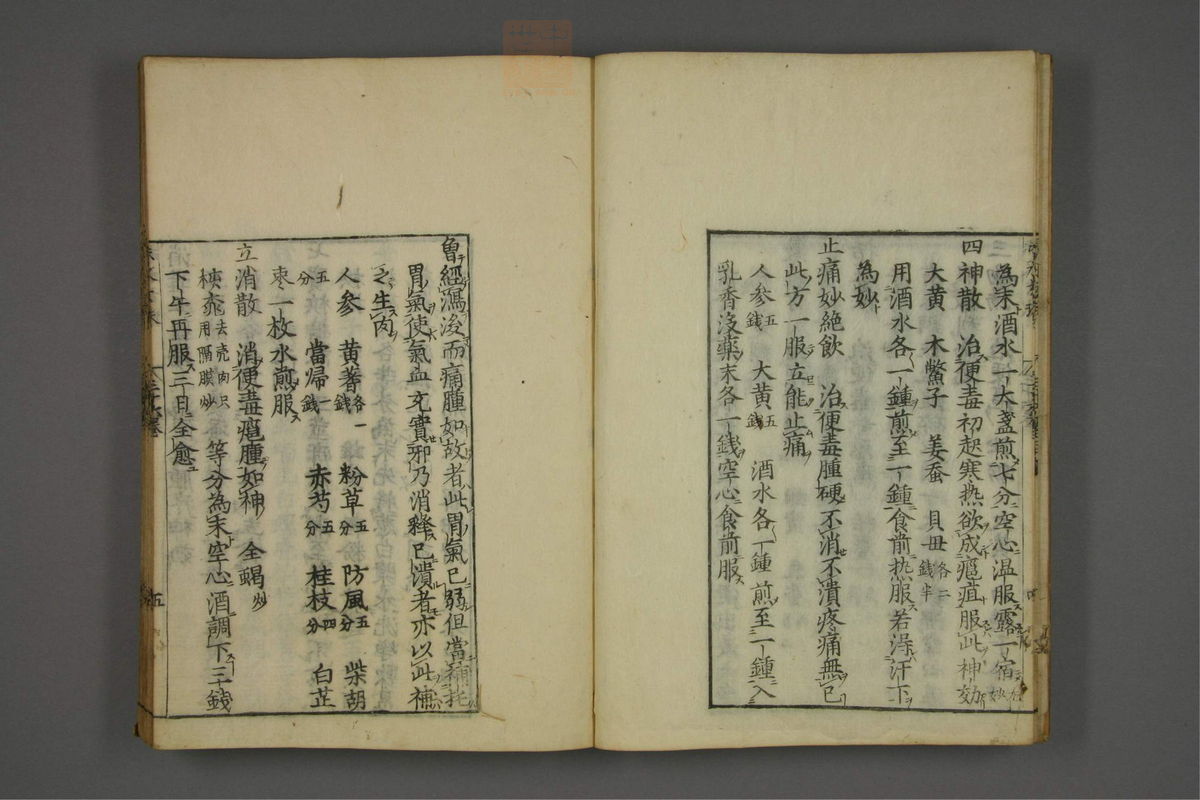 為末酒水一大盞煎七分空心温服露一宿尤妙
四神散　治便毒初起寒热欲成疽服此神効
大黄　木鱉子　姜蚕　貝母各二錢半
用酒水各一鍾煎至一鍾食前热服若澡汗下
為妙
止痛妙絶飲　治便毒腫硬不消不潰疼痛無已
此方一服立能止痛
人参五錢　大黄五錢　酒水各一鍾煎至一鍾入
乳香没藥末各一錢空心食前服
曾經瀉後而痛腫如故者此胃氣已弱但當補托
胃氣使氣血充實邪乃消釋已潰者亦以此補
之生肉
人参　黄蓍各一錢　粉草五分　防風五分　柴胡
五分　當帰一錢　赤芍五分　桂枝四分　白芷
枣一枚水煎服
立消散　消便毒瘡腫如神　全蝎炒
核桃去壳肉只用隔膜炒　等分為末空心酒調下三錢
下午再服三日全愈
五